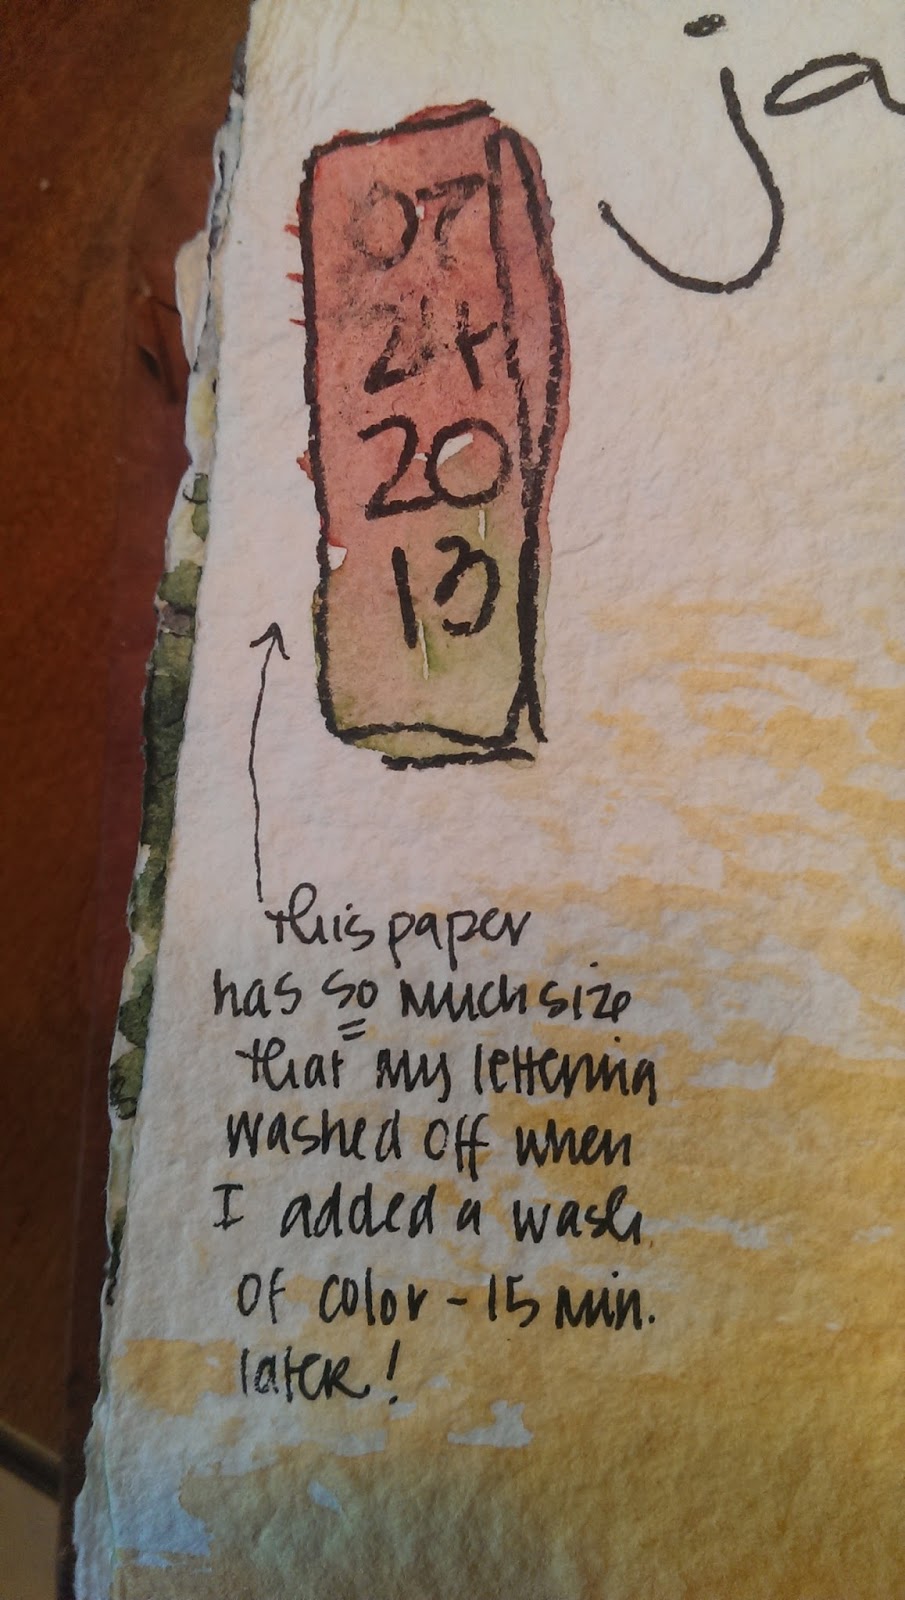 ja
07
24
20
13
this paper
has so much size
that my lettering
washed off when
I added a wash
of color - 15 min.
later!